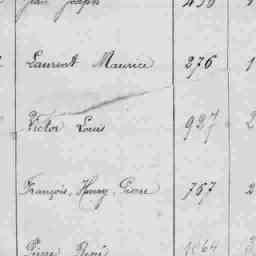 Jean Joseph 430
Laurent Maurice 276 1
Victor Louis 927 2
François, Henry, Pierre 767 2
Pierre René 1064